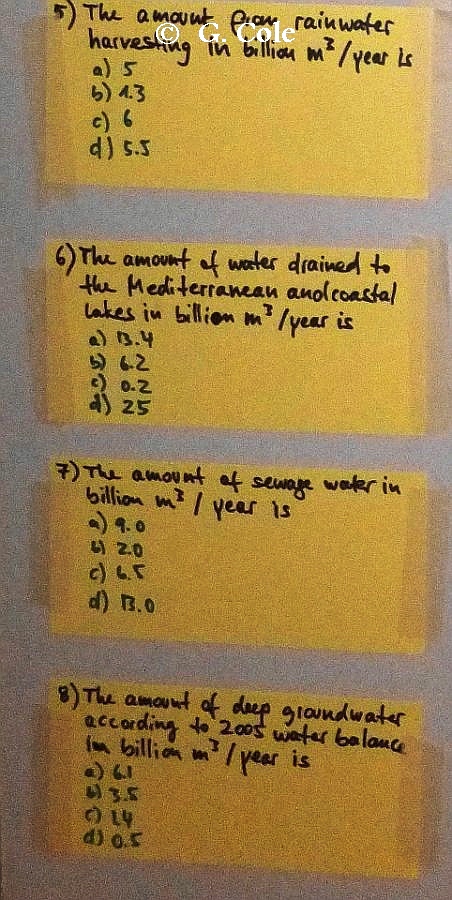 5) The amount from rainwater
harvesting in billion m³/year is
© G. Cole
a) 5
b) 1.3
c) 6
d) 5.5
6) The amount of water drained to
the Mediterranean and coastal
Lakes in billion m³/year is
a) 13.4
b) 6.2
c) 0.2
d) 25
7) The amount of sewage water in
billion m³/year is
a) 9.0
b) 2.0
c) 6.5
d) 13.0
8) The amount of deep groundwater
according to 2005 water balance
im billion m³/year is
a) 6.1
b) 3.5
c) 1.4
d) 0.5